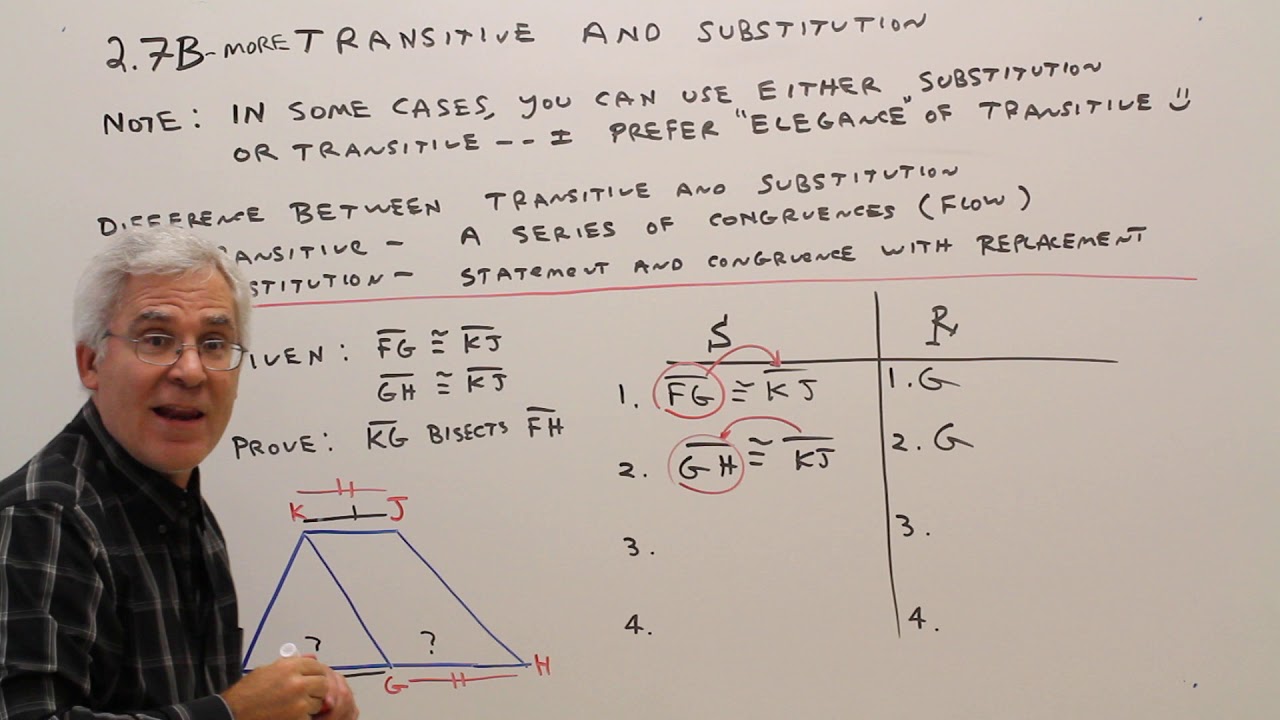 2.7B-MORE TRANSITIVE AND SUBSTITUTION
NOTE: IN SOME CASES, YOU CAN USE EITHER SUBSTITUTION
OR TRANSITIVE -- I PREFER "ELEGANCE" OF TRANSITIVE
DIFFERENCE BETWEEN TRANSITIVE AND SUBSTITUTION
ANSITIVE - A SERIES OF CONGRUENCES (FLOW)
STITUTION - STATEMENT AND CONGRUENCE WITH REPLACEMENT
IVEN: F̅G̅ ≅ K̅J̅
G̅H̅ ≅ K̅J̅
PROVE: K̅G̅ BISECTS F̅H̅
K J
? ?
G H
S R
1. F̅G̅ ≅ K̅J̅ 1. G
2. G̅H̅ ≅ K̅J̅ 2. G
3. 3.
4. 4.